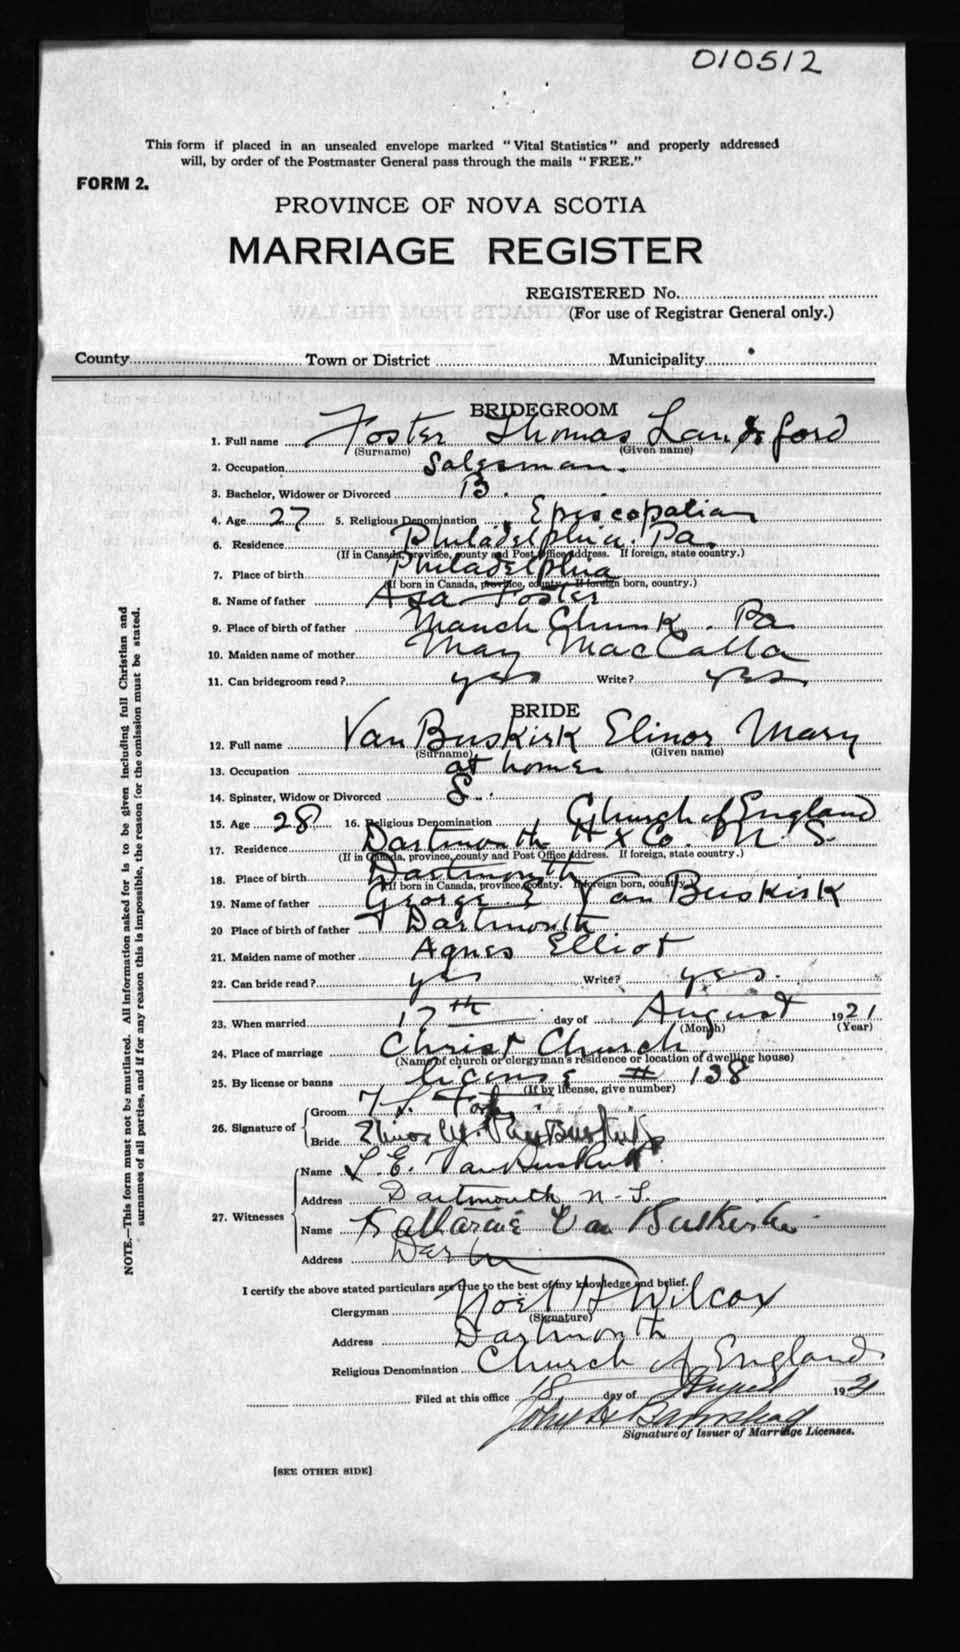 010512
This form if placed in an unsealed envelope marked "Vital Statistics" and properly addressed
will, by order of the Postmaster General pass through the mails "FREE."
FORM 2.
PROVINCE OF NOVA SCOTIA
MARRIAGE REGISTER
REGISTERED No.
(For use of Registrar General only.)
County Town or District Municipality
BRIDEGROOM
1. Full name Foster Thomas Landsford
(Surname) (Given name)
2. Occupation Salesman.
3. Bachelor, Widower or Divorced B.
4. Age 27 5. Religious Denomination Episcopalian
6. Residence Philadelphia. Pa.
(If in Canada, province, county and Post Office Address. If foreign, state country.)
7. Place of birth Philadelphia
(If born in Canada, province, county. If foreign born, country.)
8. Name of father Asa Foster
9. Place of birth of father Mauch Chunk. Pa
10. Maiden name of mother May MacCalla
11. Can bridegroom read? yes Write? yes
BRIDE
12. Full name Van Buskirk Elinor Mary
(Surname) (Given name)
13. Occupation at home
14. Spinster, Widow or Divorced S.
15. Age 28 16. Religious Denomination Church of England
17. Residence Dartmouth Hx Co. N. S.
(If in Canada, province, county and Post Office Address. If foreign, state country.)
18. Place of birth Dartmouth
(If born in Canada, province, county. If foreign born, country.)
19. Name of father George E Van Buskirk
20 Place of birth of father Dartmouth
21. Maiden name of mother Agnes Elliot
22. Can bride read? yes Write? yes.
23. When married 17th day of August 1921
(Month) (Year)
24. Place of marriage Christ Church
(Name of church or clergyman's residence or location of dwelling house)
25. By license or banns license # 138
(If by license, give number)
26. Signature of Groom T. L. Foster
Bride Elinor M. Van Buskirk
27. Witnesses Name L. E. Van Buskirk
Address Dartmouth N. S.
Name Katharine Van Buskirk
Address Dartm
I certify the above stated particulars are true to the best of my knowledge and belief.
Clergyman Noel H Wilcox
(Signature)
Address Dartmouth
Religious Denomination Church of England
Filed at this office 18 day of August 1921
Signature of Issuer of Marriage Licenses.
[SEE OTHER SIDE]
NOTE.—This form must not be mutilated. All information asked for is to be given including full Christian and
surnames of all parties, and if for any reason this is impossible, the reason for the omission must be stated.